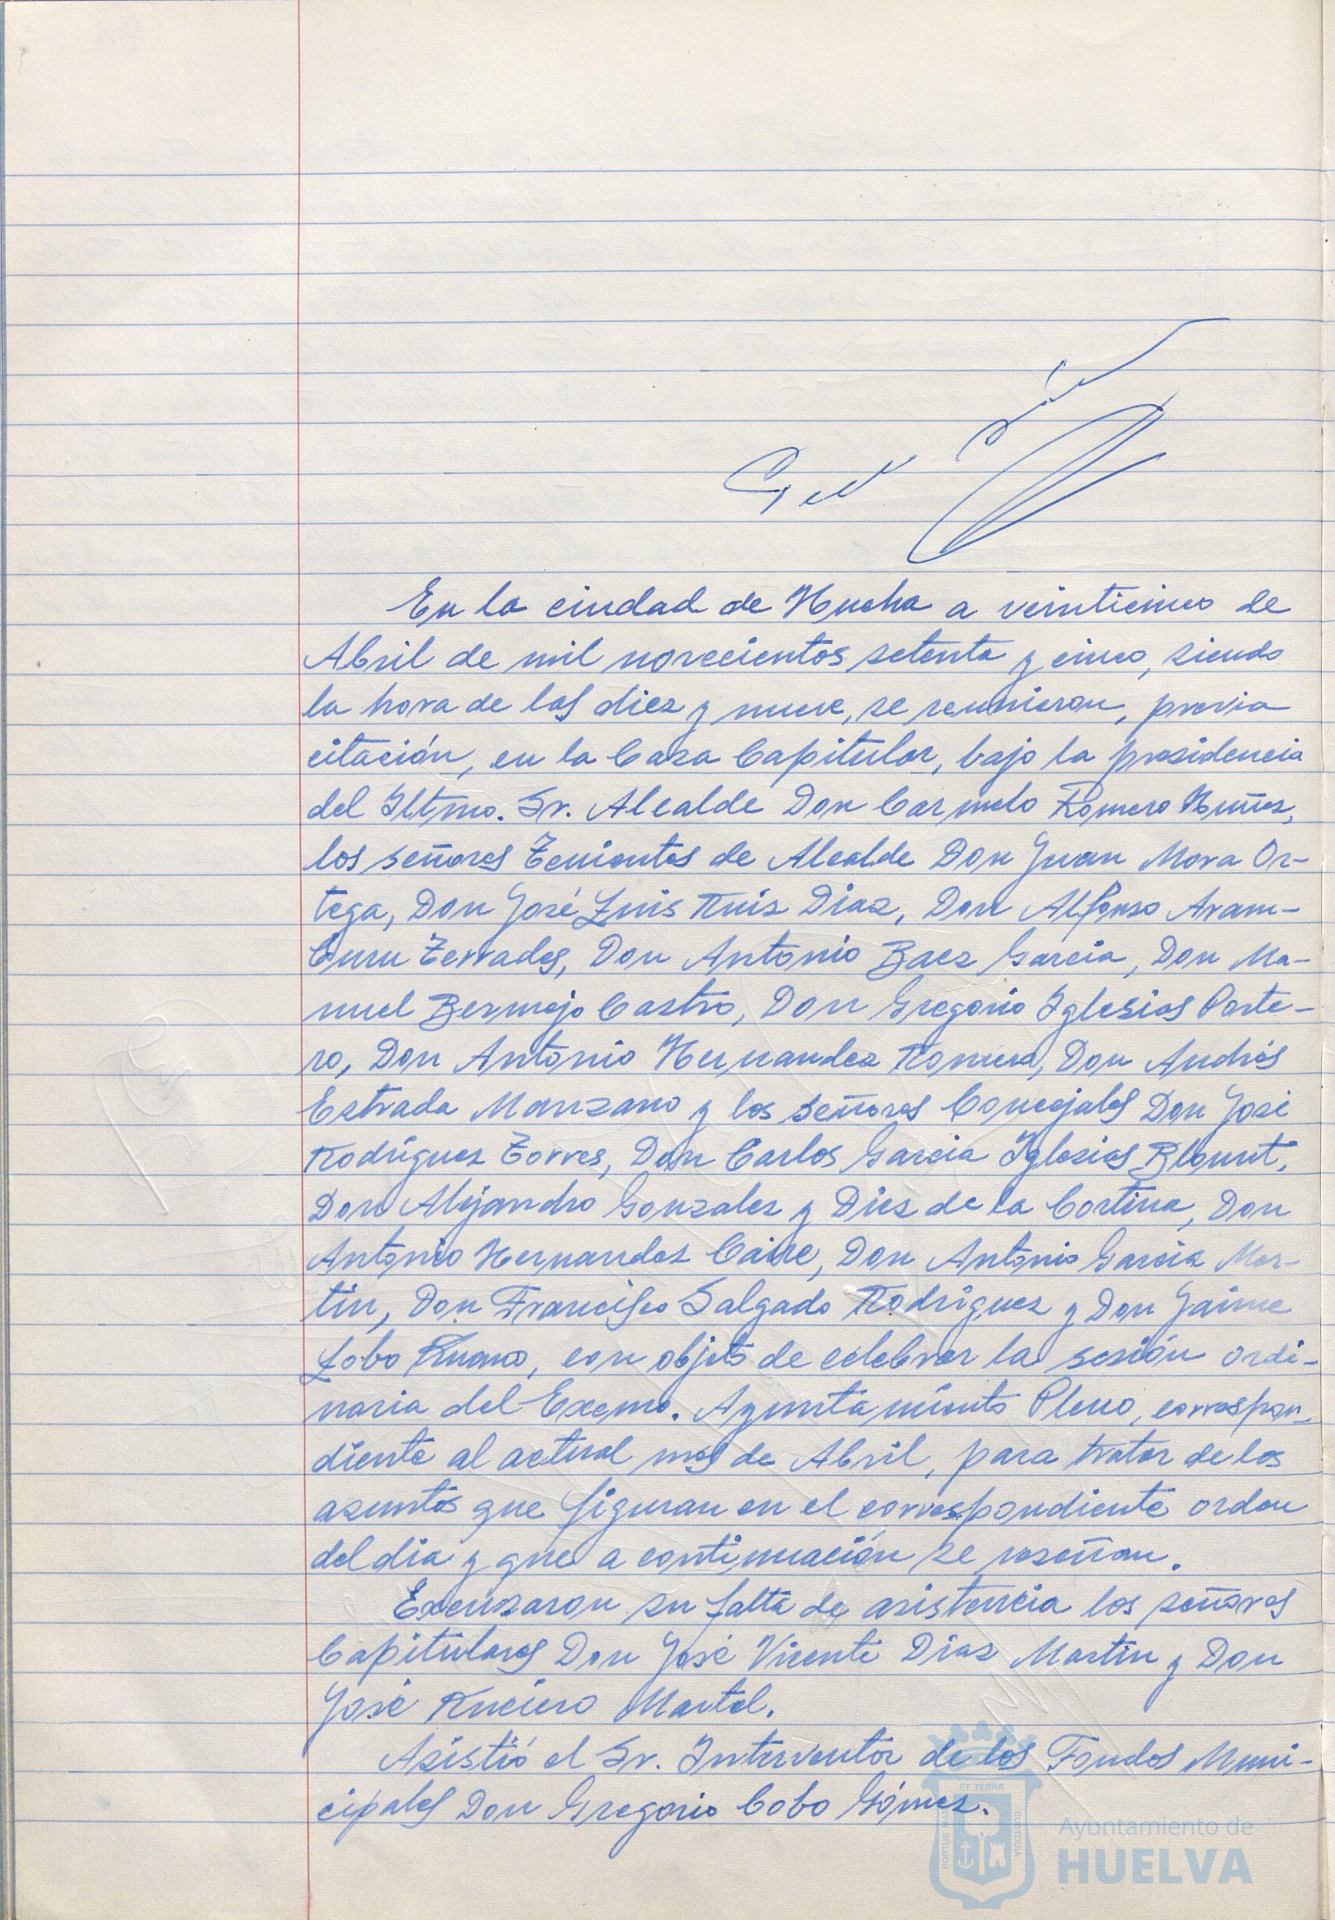 En la ciudad de Huelva a veinticinco de
Abril de mil novecientos setenta y cinco, siendo
la hora de las diez y nueve, se reunieron, previa
citación, en la Casa Capitular, bajo la presidencia
del Iltmo. Sr. Alcalde Don Carmelo Romero Nuñez,
los señores Tenientes de Alcalde Don Juan Mora Or-
tega, Don José Luis Ruiz Diaz, Don Alfonso Aram-
buru Terrades, Don Antonio Baez García, Don Ma-
nuel Bermejo Castro, Don Gregorio Iglesias Porte-
ro, Don Antonio Hernandez Romero, Don Andrés
Estrada Manzano y los señores Concejales Don José
Rodríguez Torres, Don Carlos Garcia Iglesias Blount,
Don Alejandro Gonzalez y Diez de la Cortina, Don
Antonio Hernandez Caire, Don Antonio García Mar-
tin, Don Francisco Salgado Rodríguez y Don Jaime
Lobo Ruano, con objeto de celebrar la sesión ordi-
naria del Excmo. Ayuntamiento Pleno, correspon-
diente al actual mes de Abril, para tratar de los
asuntos que figuran en el correspondiente orden
del dia y que a continuación se reseñan.
Excusaron su falta de asistencia los señores
Capitulares Don José Vicente Diaz Martin y Don
José Martel.
Asistió el Sr. Interventor de los Fondos Muni-
cipales Don Gregorio Cobo Gómez.
ET TERRÆ
PORTUS MARIS
CUSTODIA
Ayuntamiento de
HUELVA